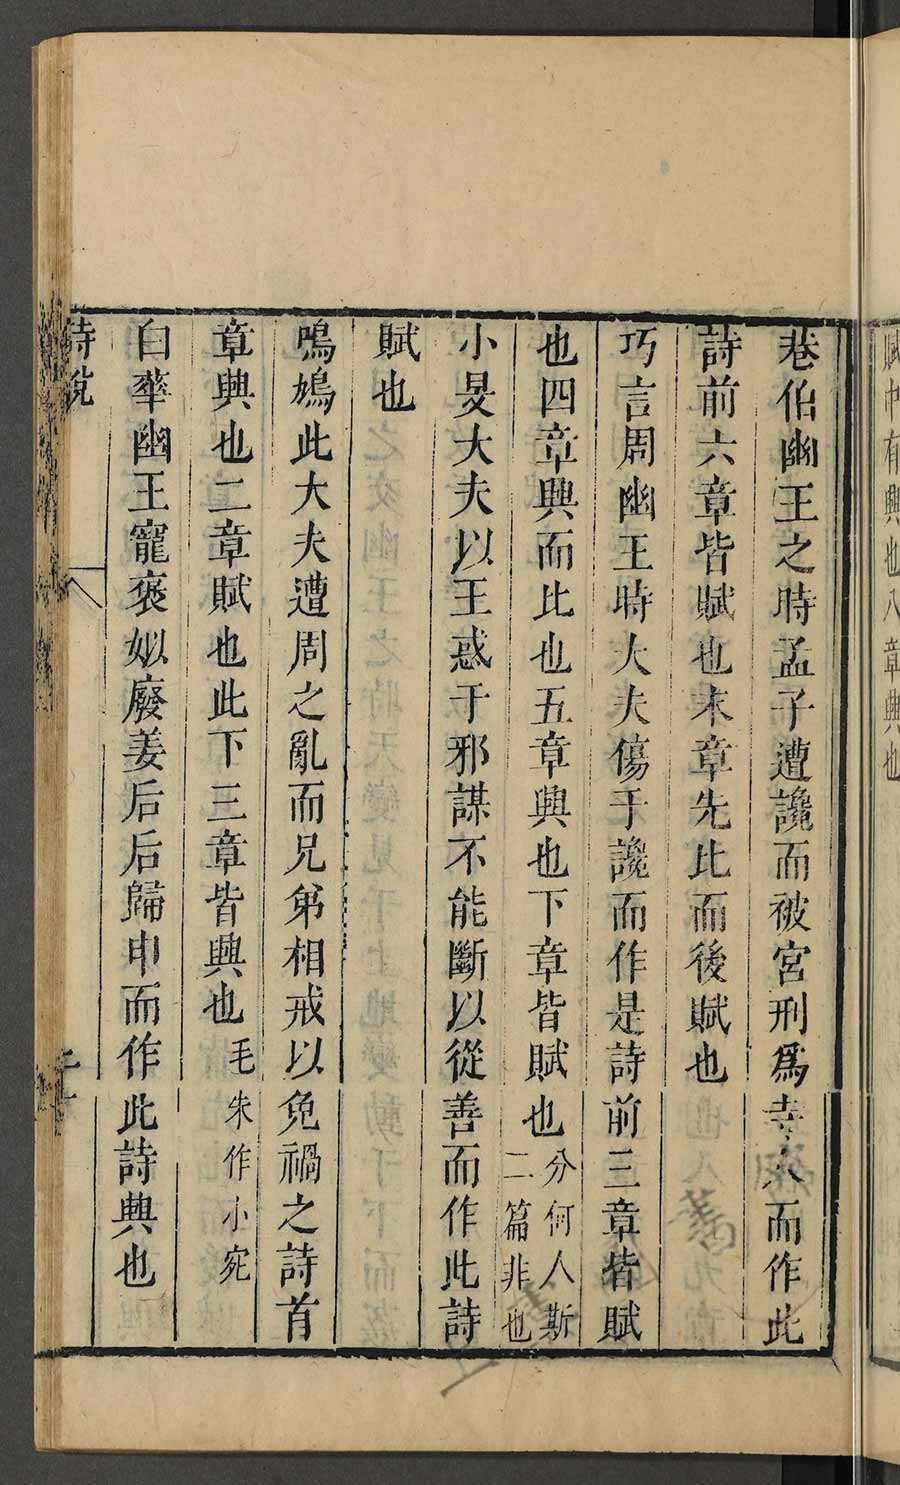 賦中有興也八章興也
巷伯幽王之時孟子遭讒而被宮刑爲寺人而作此
詩前六章皆賦也末章先比而後賦也
巧言周幽王時大夫傷于讒而作是詩前三章皆賦
也四章興而比也五章興也下章皆賦也分何人斯
二篇非也
小旻大夫以王惑于邪謀不能斷以從善而作此詩
賦也
鳴鳩此大夫遭周之亂而兄弟相戒以免禍之詩首
章興也二章賦也此下三章皆興也毛朱作小宛
白華幽王寵褒姒廢姜后后歸申而作此詩興也
詩說